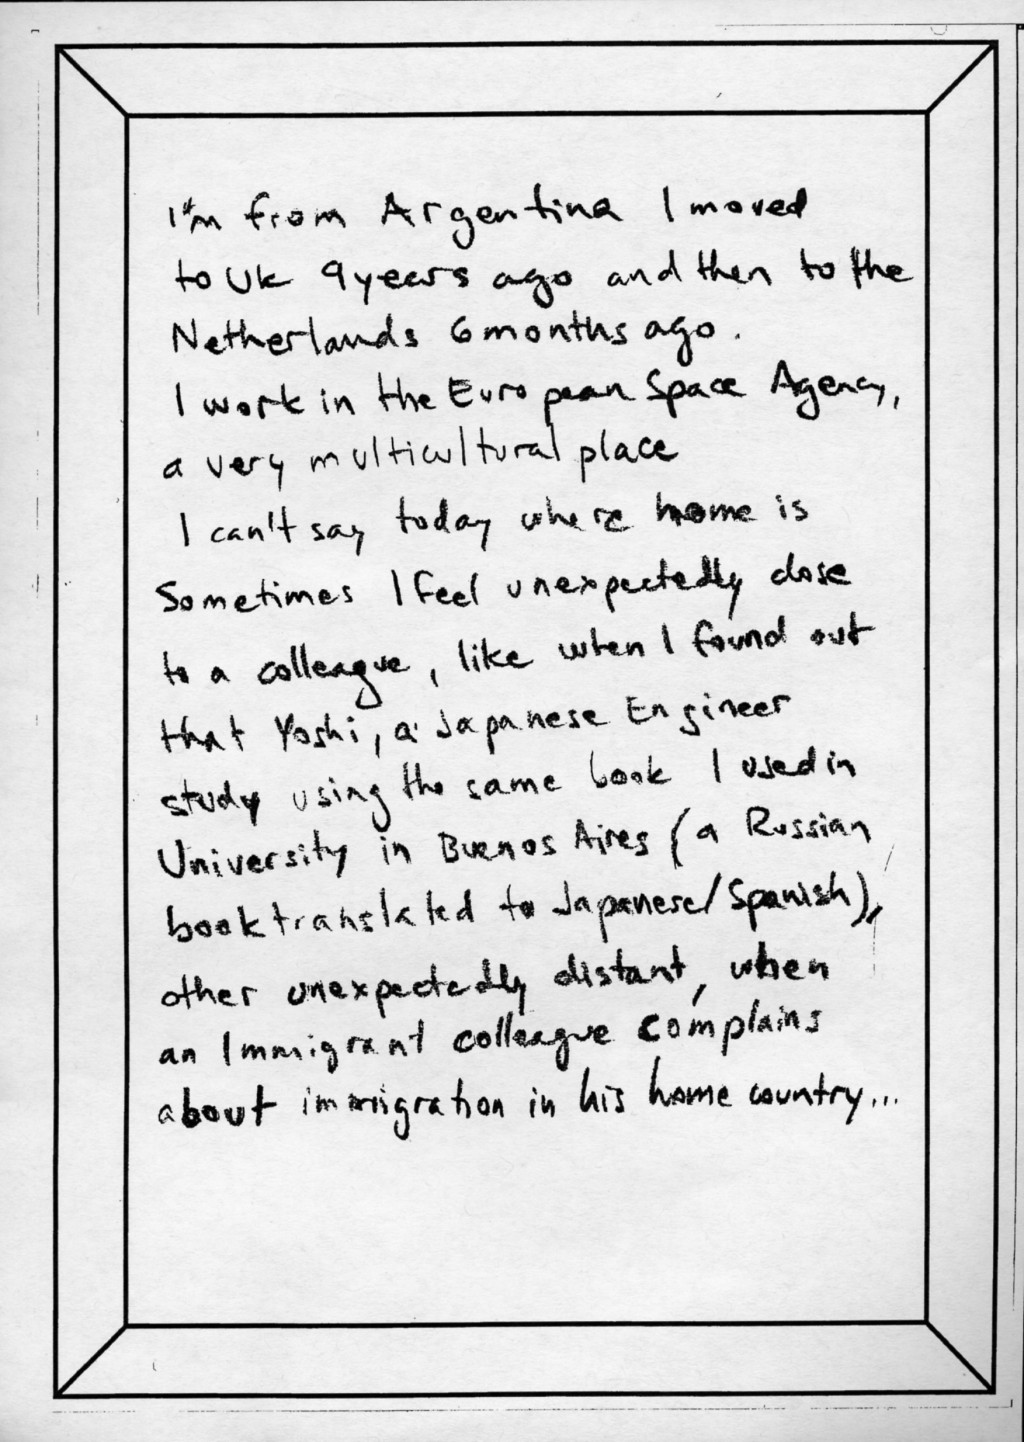 I'm from Argentina I moved
to UK 9 years ago and then to the
Netherlands 6 months ago.
I work in the European Space Agency,
a very multicultural place
I can't say today where home is
Sometimes I feel unexpectedly close
to a colleague, like when I found out
that Yoshi, a Japanese Engineer
study using the same book I used in
University in Buenos Aires (a Russian
book translated to Japanese/Spanish),
other unexpectedly distant, when
an Immigrant colleague complains
about immigration in his home country...